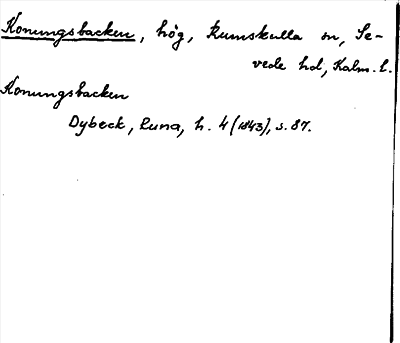 Konungsbacken, hög, Rumskulla sn, Se-
vede hd, Kalm. l.
Konungsbacken
Dybeck, Runa, h. 4 (1843), s. 87.